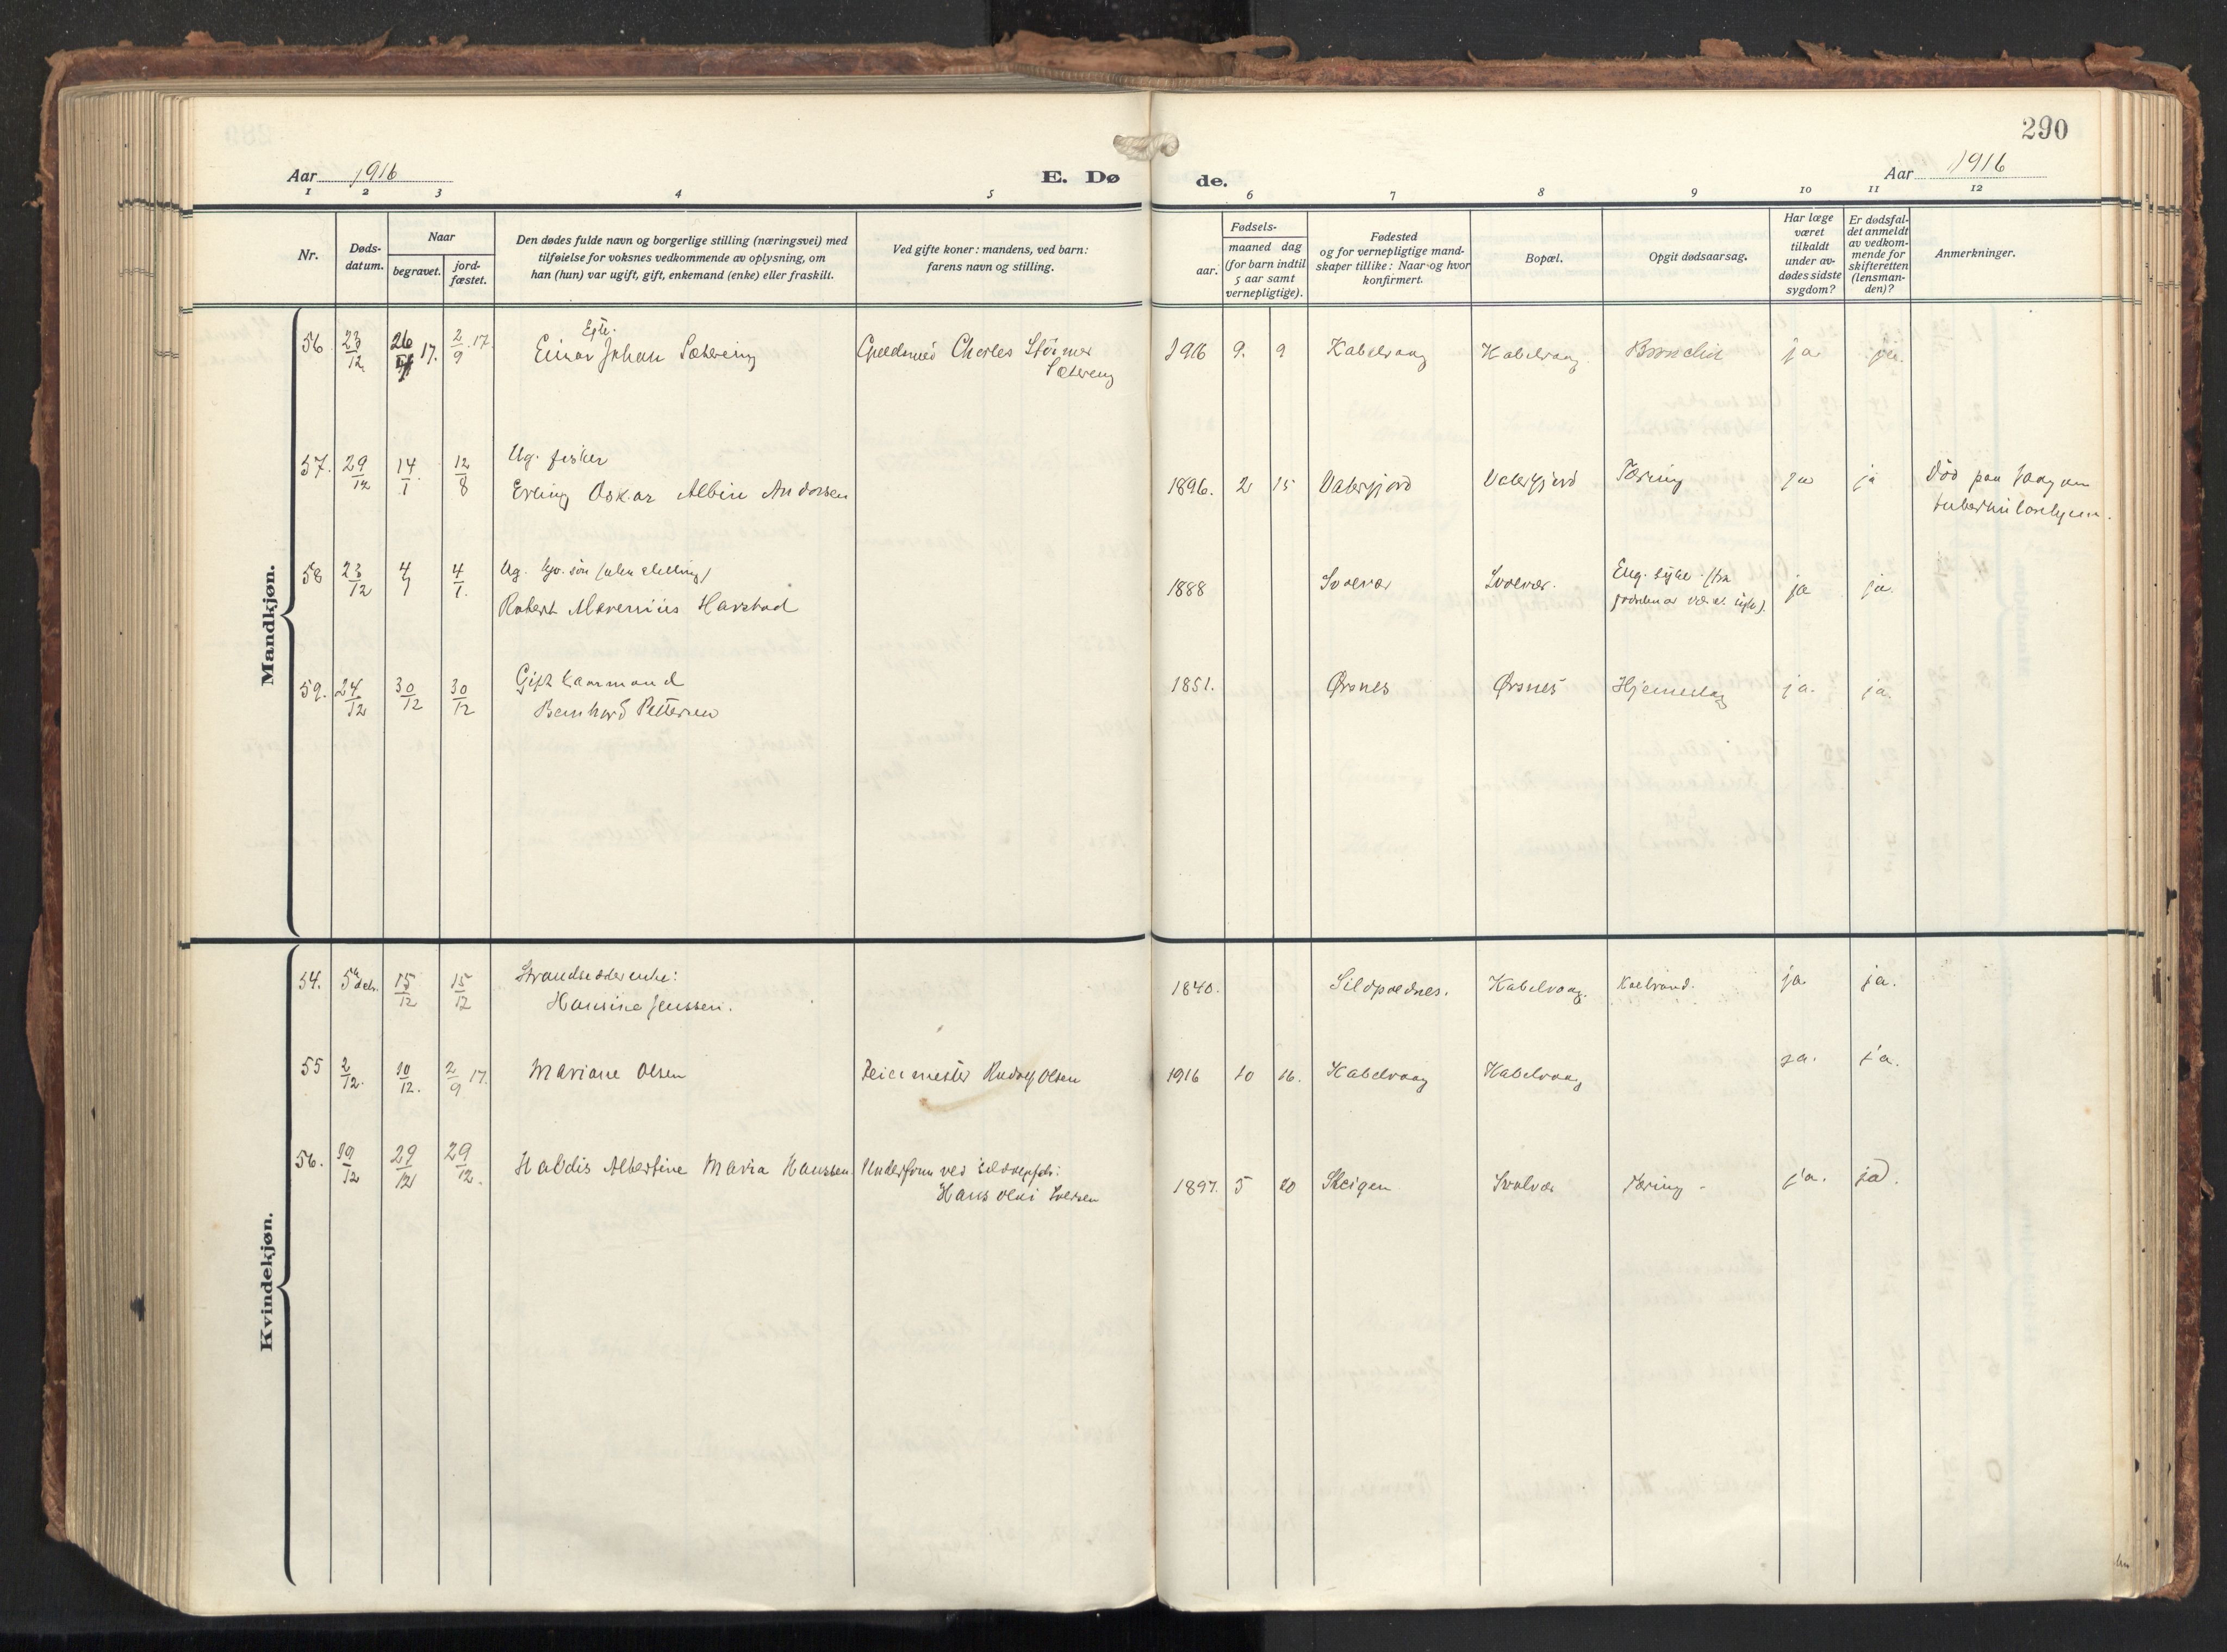 290
Aar 1916
E. Dø
de.
Aar 1916
1 2 3 4 5
6 7 8 9 10 11 12
Nr.
Døds-
datum.
Naar
begravet.
jord-
fæstet.
Den dødes fulde navn og borgerlige stilling (næringsvei) med
tilføielse for voksnes vedkommende av oplysning, om
han (hun) var ugift, gift, enkemand (enke) eller fraskilt.
Ved gifte koner: mandens, ved barn:
farens navn og stilling.
Fødsels-
aar.
maaned dag
(for barn indtil
5 aar samt
vernepligtige).
Fødested
og for vernepligtige mand-
skaper tillike: Naar og hvor
konfirmert.
Bopæl.
Opgit dødsaarsag.
Har læge
været
tilkaldt
under av-
dødes sidste
sygdom?
Er dødsfal-
det anmeldt
av vedkom-
mende for
skifteretten
(lensman-
den)?
Anmerkninger.
Mandkjøn.
Egte.
56 23/12 26 17. 2/9 17. Einar Johan Sætereng Guldsmed Charles Størmer 1916 9. 9 Kabelvaag Kabelvaag ja ja.
Sætereng
Ug. fisker
57. 29/12 14/1 12/8 Erling Oskar Albin Andorsen 1896. 2 15 Vaterfjord Vaterfjord Tæring ja ja Død paa Vaagan
tuberkulosehjem.
Ug.
58 23/12 4/1 4/1. Robert Harstad 1888 Svolvær Svolvær. Eng. syke (fra
ja ja.
Gift kaarmand
59. 24/12 30/12 30/12 Bernhard Pettersen 1851. Ørsnes Ørsnes Hjerneslag ja. ja.
Kvindekjøn.
Strandsidderenke:
54. 5te debr. 15/12 15/12 Hansine Jenssen. 1840. Sildpoldnes. Kabelvaag. Koldbrand. ja ja.
55 2/12. 10/12. 2/9 17. Mariane Olsen Feiermester Rudolf Olsen 1916 10 16. Kabelvaag Kabelvaag ja. ja.
56. 19/12 29/12 29/12. Haldis Albertine Maria Hanssen. ved
Hans 1897. 5 20 Steigen Svolvær Tæring - ja. ja.